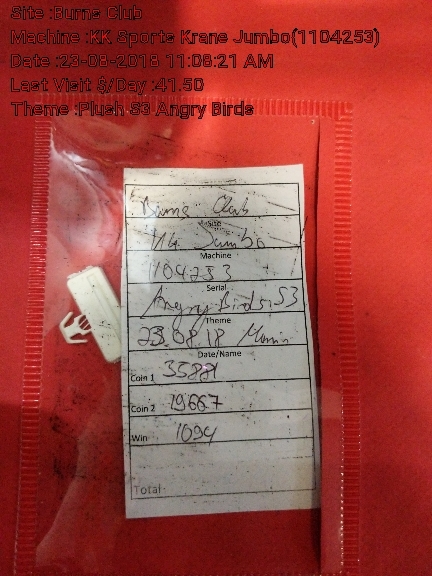 Site :Burns Club
Machine :KK Sports Krane Jumbo(1104253)
Date :23-08-2018 11:08:21 AM
Last Visit $/Day :41.50
Theme :Plush S3 Angry Birds
Burns Club
Site
Jumbo
Machine
1104253
Serial
Angry Birds S3
Theme
23.08.18
Date/Name
Coin 1 35881
Coin 2 19667
Win 1094
Total